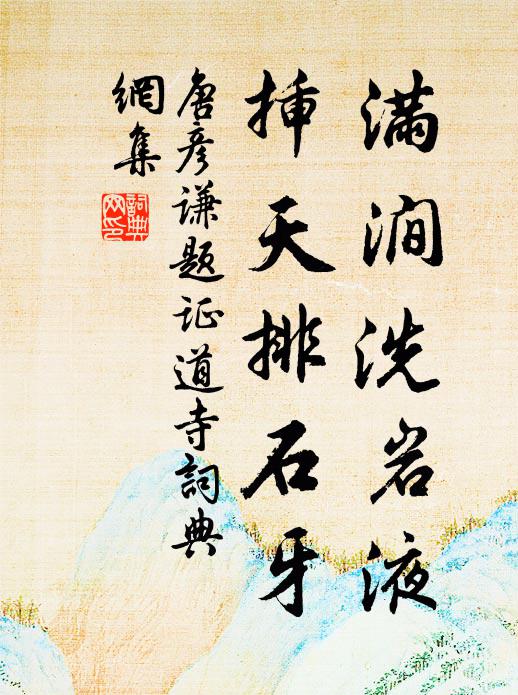 满涧洗岩液
插天排石牙
唐彦谦题证道寺词典
網集
詞典網印